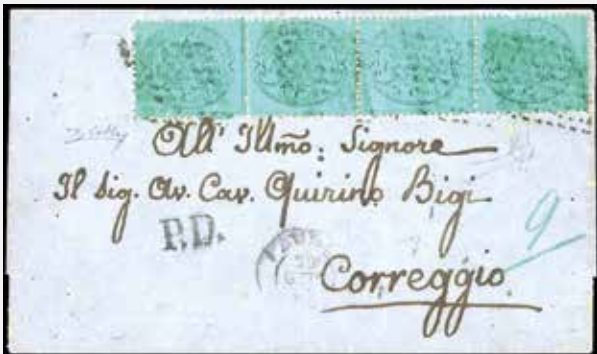 All' Illmo: Signore
Il Sig. Av. Cav. Quirino Bigi
P.D.
9
Correggio